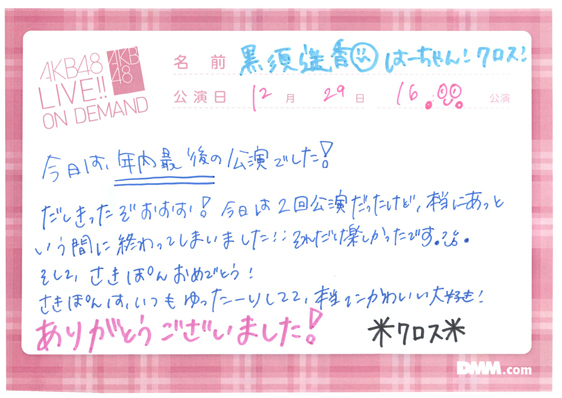 AKB48
LIVE!!
ON DEMAND
AKB
48
名 前 黒須遥香 はーちゃん！クロス！
公演日 12 月 29 日 16:00 公演
今日は、年内最後の公演でした！
だしきったぞおおお！今日は2回公演だったけど、本当にあっと
いう間に終わってしまいました！！それだけ楽しかったです。
そして、さきぽんおめでとう！
さきぽんは、いつもゆったーりしてて、本当にかわいい大好き！
ありがとうございました！ *クロス*
DMM.com